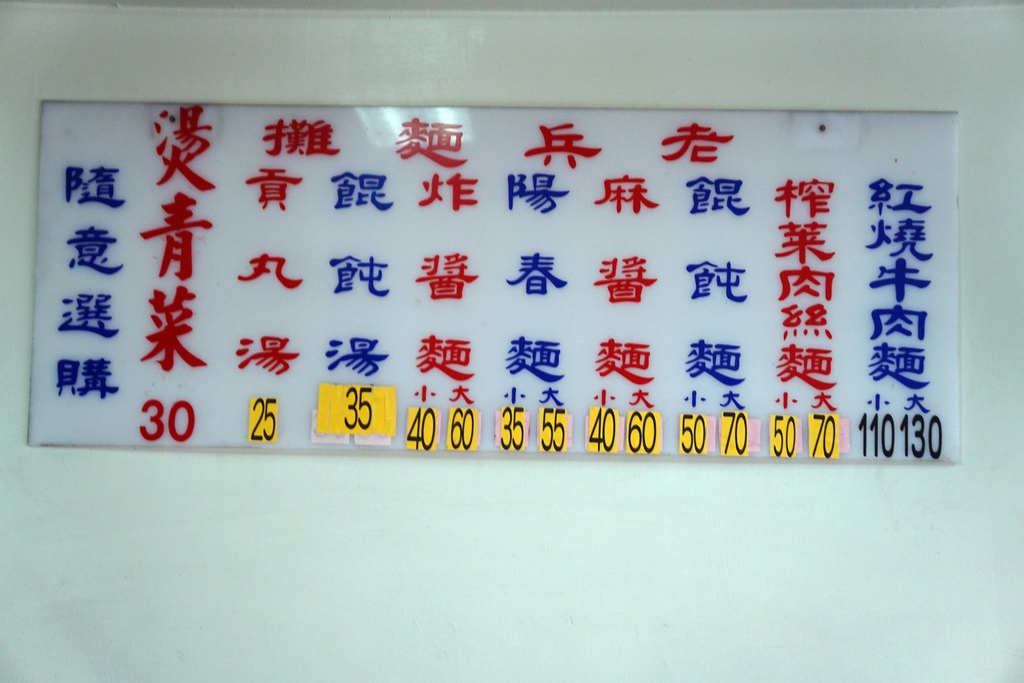 老兵麵攤
紅燒牛肉麵
小 大
110 130
榨菜肉絲麵
小 大
50 70
餛飩麵
小 大
50 70
麻醬麵
小 大
40 60
陽春麵
小 大
35 55
炸醬麵
小 大
40 60
餛飩湯
35
貢丸湯
25
燙青菜
30
隨意選購